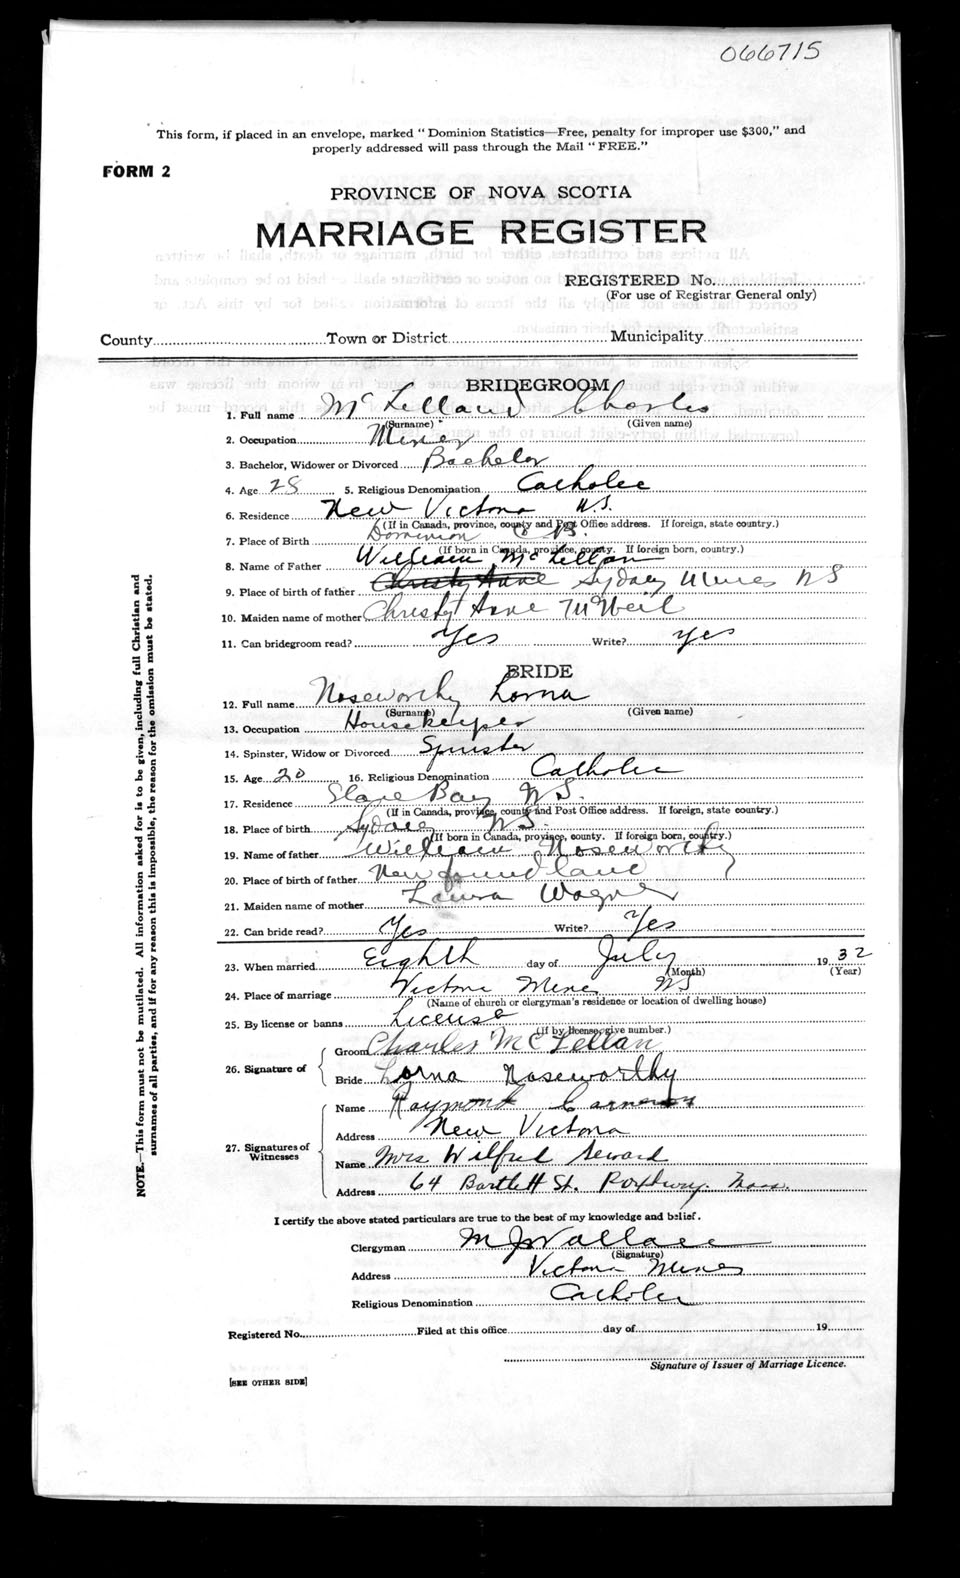 066715
This form, if placed in an envelope, marked "Dominion Statistics—Free, penalty for improper use $300," and
properly addressed will pass through the Mail "FREE."
FORM 2
PROVINCE OF NOVA SCOTIA
MARRIAGE REGISTER
REGISTERED No.
(For use of Registrar General only)
County Town or District Municipality
BRIDEGROOM
1. Full name McLelland Charles
(Surname) (Given name)
2. Occupation Miner
3. Bachelor, Widower or Divorced Bachelor
4. Age 28 5. Religious Denomination Catholic
6. Residence New Victoria N.S.
(If in Canada, province, county and Post Office address. If foreign, state country.)
7. Place of Birth Dominion C B.
(If born in Canada, province, county. If foreign born, country.)
8. Name of Father William McLellan
9. Place of birth of father Christy Anne Sydney Mines NS
10. Maiden name of mother Christy Anne McNeil
11. Can bridegroom read? Yes Write? Yes
BRIDE
12. Full name Noseworthy Lorna
(Surname) (Given name)
13. Occupation Housekeeper
14. Spinster, Widow or Divorced Spinster
15. Age 20 16. Religious Denomination Catholic
17. Residence Glace Bay N.S.
(If in Canada, province, county and Post Office address. If foreign, state country.)
18. Place of birth Sydney N.S.
(If born in Canada, province, county. If foreign born, country.)
19. Name of father William Noseworthy
20. Place of birth of father Newfoundland
21. Maiden name of mother Laura Wagner
22. Can bride read? Yes Write? Yes
23. When married Eighth day of July 1932
(Month) (Year)
24. Place of marriage Victoria Mines NS
(Name of church or clergyman's residence or location of dwelling house)
25. By license or banns License
(If by license, give number.)
26. Signature of
Groom Charles McLellan
Bride Lorna Noseworthy
27. Signatures of Witnesses
Name Raymond
Address New Victoria
Name Mrs Wilfred Seward
Address 64 Bartlett St. Roxbury. Mass.
I certify the above stated particulars are true to the best of my knowledge and belief.
Clergyman M J Wallace
(Signature)
Address Victoria Mines
Religious Denomination Catholic
Registered No. Filed at this office day of 19
Signature of Issuer of Marriage Licence.
[SEE OTHER SIDE]
NOTE.—This form must not be mutilated. All information asked for is to be given, including full Christian and
surnames of all parties, and if for any reason this is impossible, the reason for the omission must be stated.